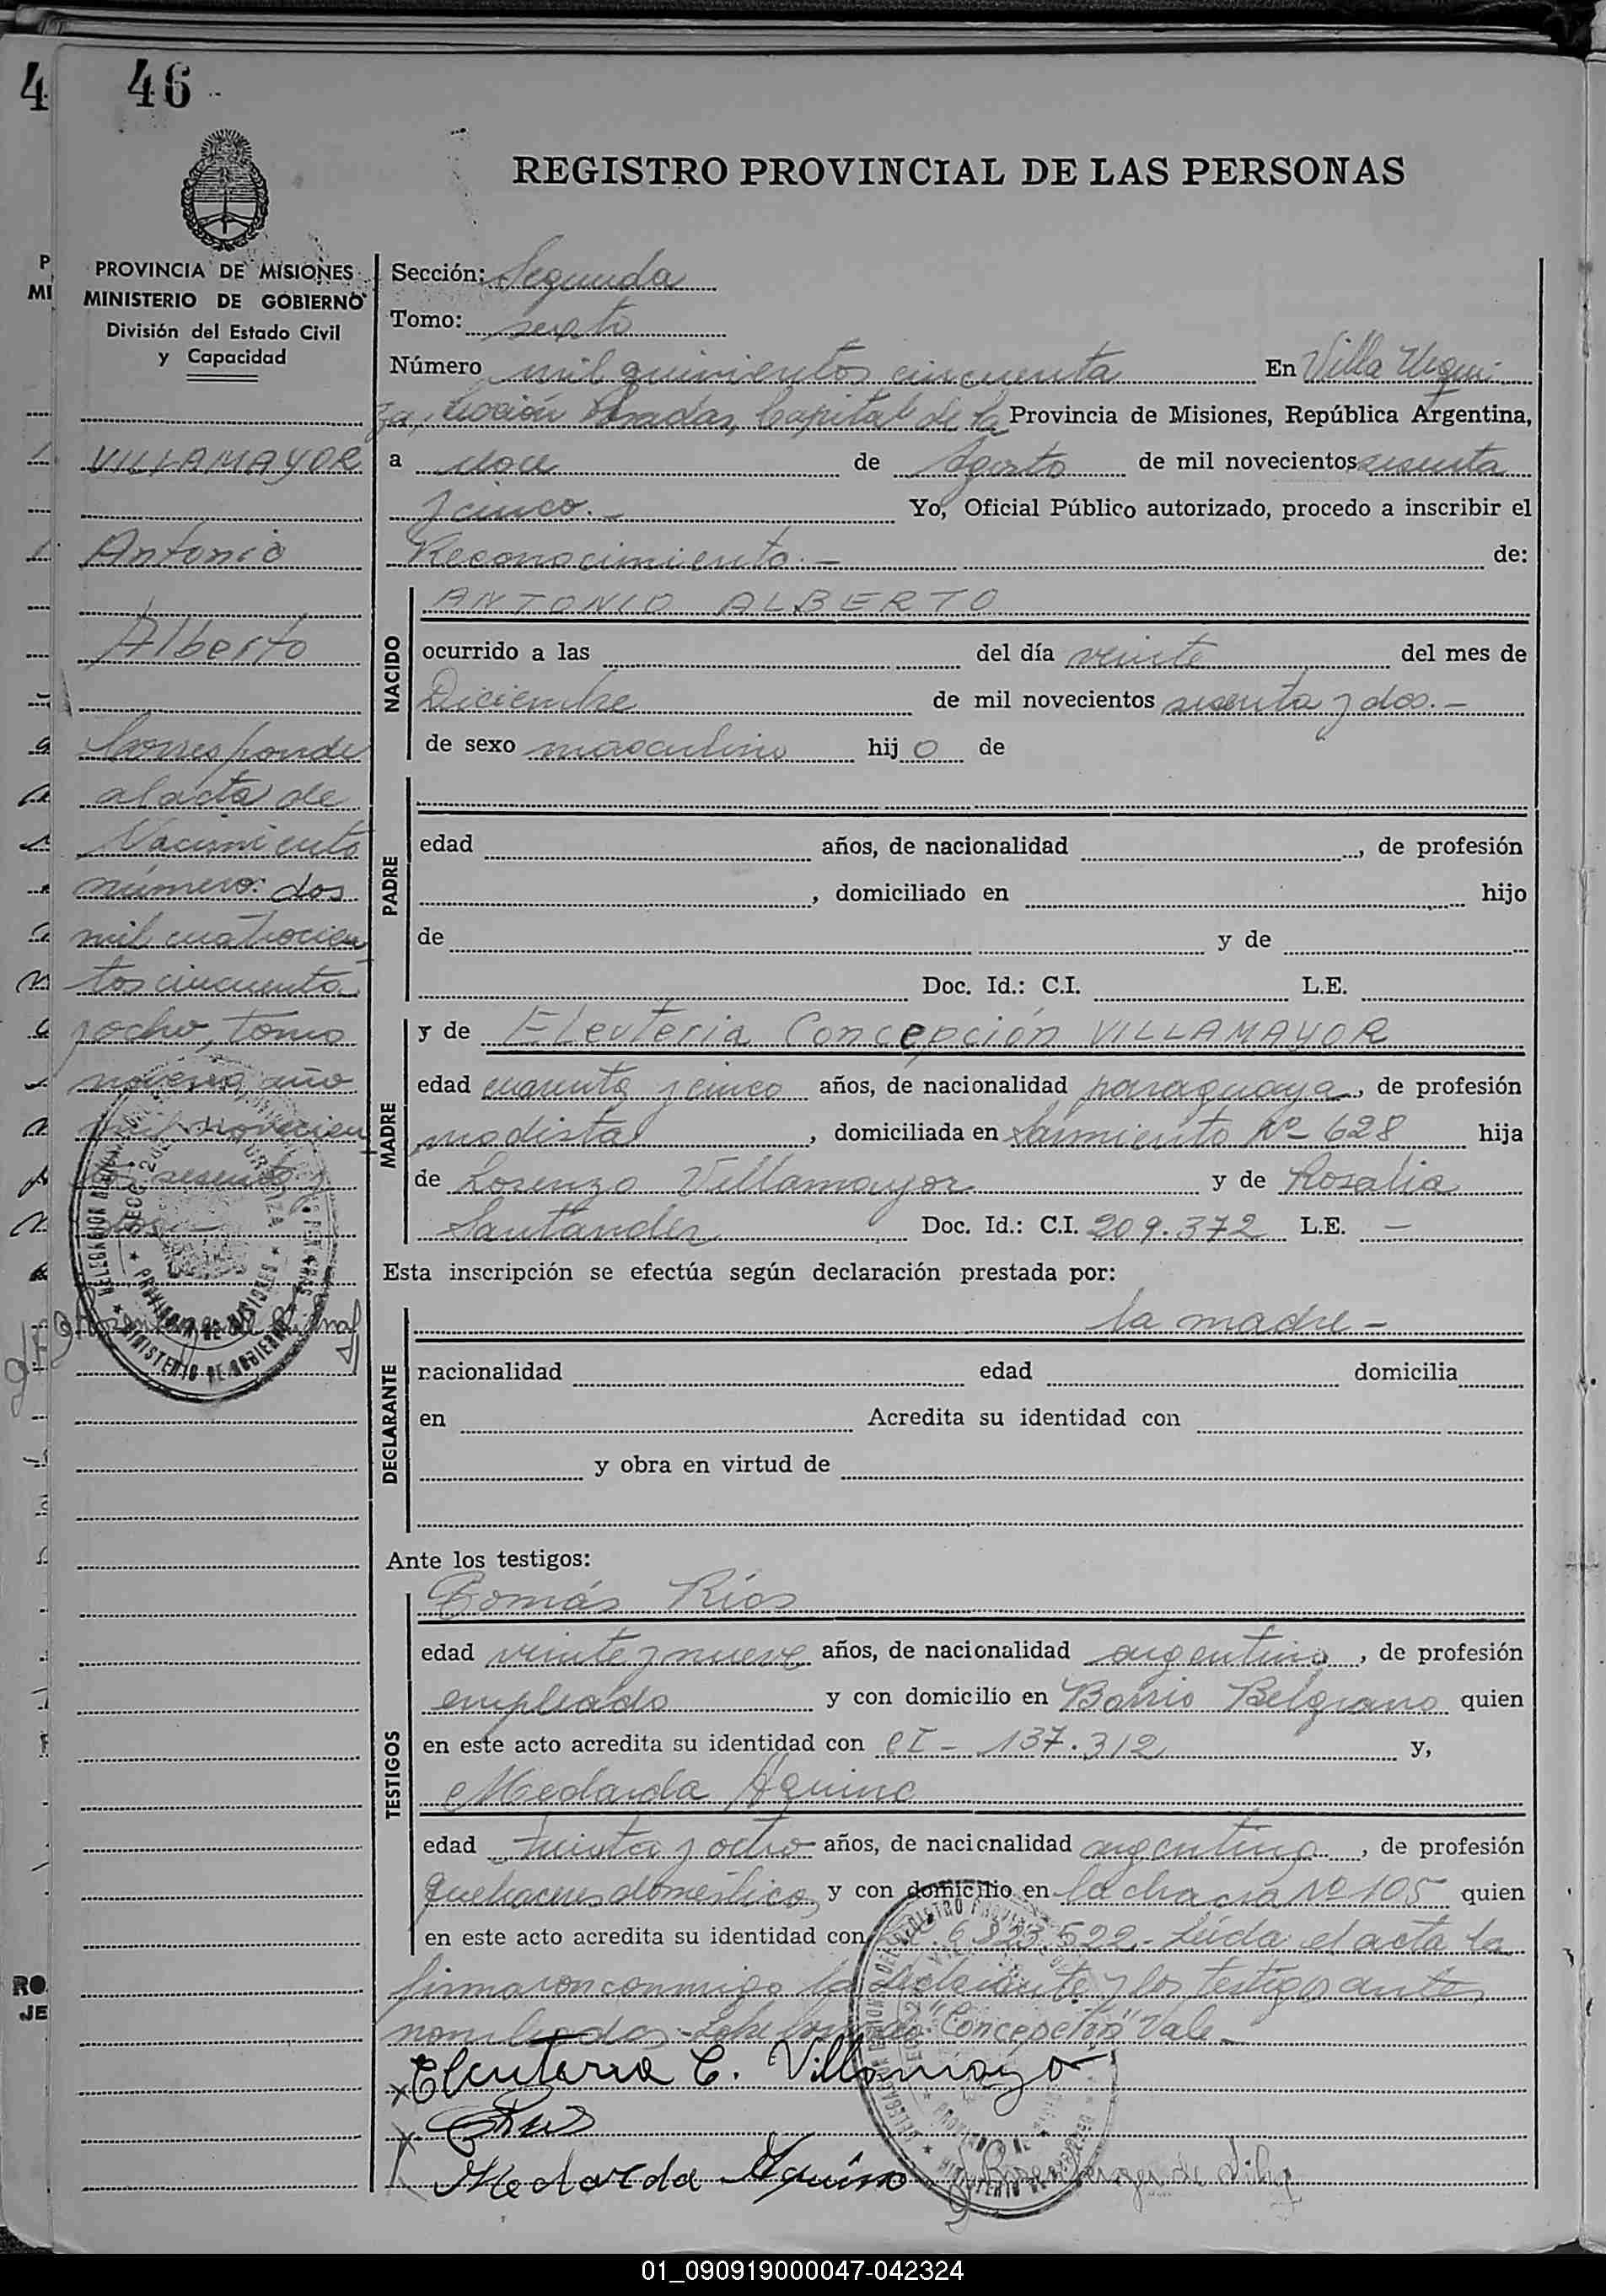 46
REGISTRO PROVINCIAL DE LAS PERSONAS
PROVINCIA DE MISIONES
MINISTERIO DE GOBIERNO
División del Estado Civil
y Capacidad
VILLAMAYOR
Antonio
Alberto
Corresponde
al acta de
Nacimiento
número: dos
mil cuatrocien
tos cincuenta
y ocho, tomo
noveno año
mil novecien
tos sesenta y
dos.-
Sección: Segunda
Tomo: sexto
Número mil quinientos cincuenta En Villa Urqui-
za, Sección Posadas, Capital de la Provincia de Misiones, República Argentina,
a doce de Agosto de mil novecientos sesenta
y cinco.- Yo, Oficial Público autorizado, procedo a inscribir el
Reconocimiento.- de:
NACIDO
ANTONIO ALBERTO
ocurrido a las del día veinte del mes de
Diciembre de mil novecientos sesenta y dos.-
de sexo masculino hijo de
PADRE
edad años, de nacionalidad , de profesión
, domiciliado en hijo
de y de
Doc. Id.: C.I. L.E.
MADRE
y de Eleuteria Concepción VILLAMAYOR
edad cuarenta y cinco años, de nacionalidad paraguaya, de profesión
modista, domiciliada en Sarmiento Nº 628 hija
de Lorenzo Villamayor y de Rosalia
Santander Doc. Id.: C.I. 209.372 L.E. —
Esta inscripción se efectúa según declaración prestada por:
DECLARANTE
la madre -
nacionalidad edad domicilia
en Acredita su identidad con
y obra en virtud de
Ante los testigos:
TESTIGOS
Tomás Ríos
edad veinte y nueve años, de nacionalidad argentino, de profesión
empleado y con domicilio en Barrio Belgrano quien
en este acto acredita su identidad con CI - 137.312 y,
Medarda Aquino
edad treinta y ocho años, de nacionalidad argentina, de profesión
quehaceres domésticos y con domicilio en la chacra Nº 105 quien
en este acto acredita su identidad con 522.- Leída el acta la
firmaron conmigo la declarante y los testigos antes
nombrados.- "Concepción" Vale-
Eleuteria C. Villamayor
Medarda Aquino
01_090919000047-042324